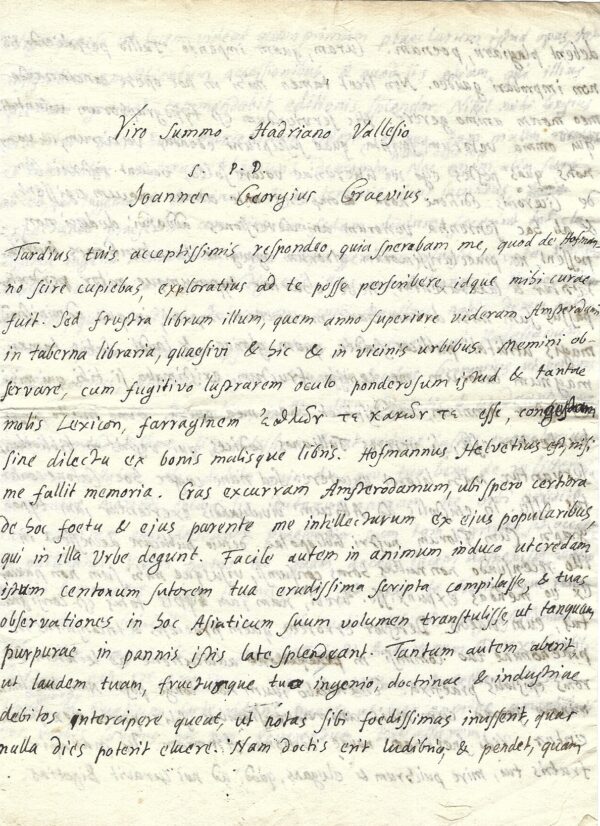 Viro Summo Hadriano Vallesio
S. P. D.
Joannes Georgius Graevius.
Tardius tuis acceptissimis respondeo, quia sperabam me, quod de Hofman
no scire cupiebas, exploratius ad te posse perscribere, idque mihi curae
fuit. Sed frustra librum illum, quem anno superiore videram Amsterdami
in taberna libraria, quaesivi & hic & in vicinis urbibus. Memini ob-
servare, cum fugitivo lustrarem oculo ponderosum istud & tantae
molis Lexicon, farraginem ἐσθλῶν τε κακῶν τε esse, congestam
sine dilectu ex bonis malisque libris. Hofmannus Helvetius est, nisi
me fallit memoria. Cras excurram Amsterodamum, ubi spero certiora
de hoc foetu & ejus parente me intellecturum ex ejus popularibus,
qui in illa Urbe degunt. Facile autem in animum induco ut credam
istum centonum sutorem tua erudissima scripta compilasse, & tuas
observationes in hoc Asiaticum suum volumen transtulisse ut tanquam
purpurae in pannis istis late splendeant. Tantum autem aberit
ut laudem tuam, fructusque tuo ingenio, doctrinae & industriae
debitos intercipere queat, ut notas sibi foedissimas inusserit, quas
nulla dies poterit eluere. Nam doctis erit ludibrio, & pendet, quam